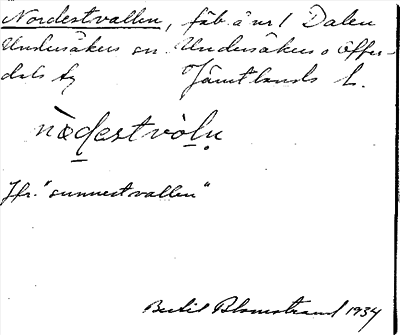 Nordestvallen, fäb. å nr 1 Dalen
Undersåkers sn. Undersåkers o Offer-
dals tg Jämtlands l.
nòdestvòln
Jfr. "sunnestvallen"
Bertil Blomstrand 1934